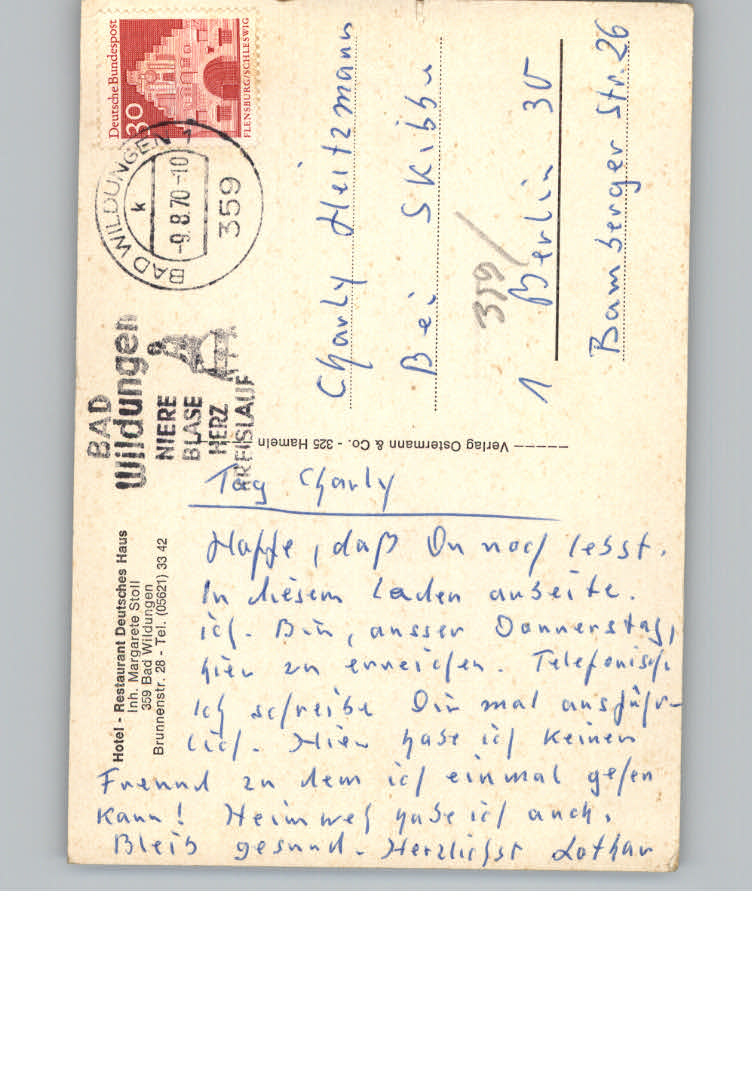 Deutsche Bundespost
30
FLENSBURG/SCHLESWIG
BAD WILDUNGEN 1
k
-9.8.70-10
359
BAD WILDUNGEN
BAD
Wildungen
NIERE
BLASE
HERZ
KREISLAUF
Hotel - Restaurant Deutsches Haus
Inh. Margarete Stoll
359 Bad Wildungen
Brunnenstr. 28 - Tel. (05621) 33 42
Verlag Ostermann & Co. - 325 Hameln
Charly Heitzmann
Bei Skibbu
359/
1 Berlin 30
Bamberger Str. 26
Tag Charly
Hoffe, daß Du noch lebst.
In diesem Laden arbeite
ich. Bin, ausser Donnerstag,
hier zu erreichen. Telefonisch
Ich schreibe Dir mal ausführ-
lich. Hier habe ich keinen
Freund zu dem ich einmal gehen
kann! Heimweh habe ich auch.
Bleib gesund. Herzlichst Lothar